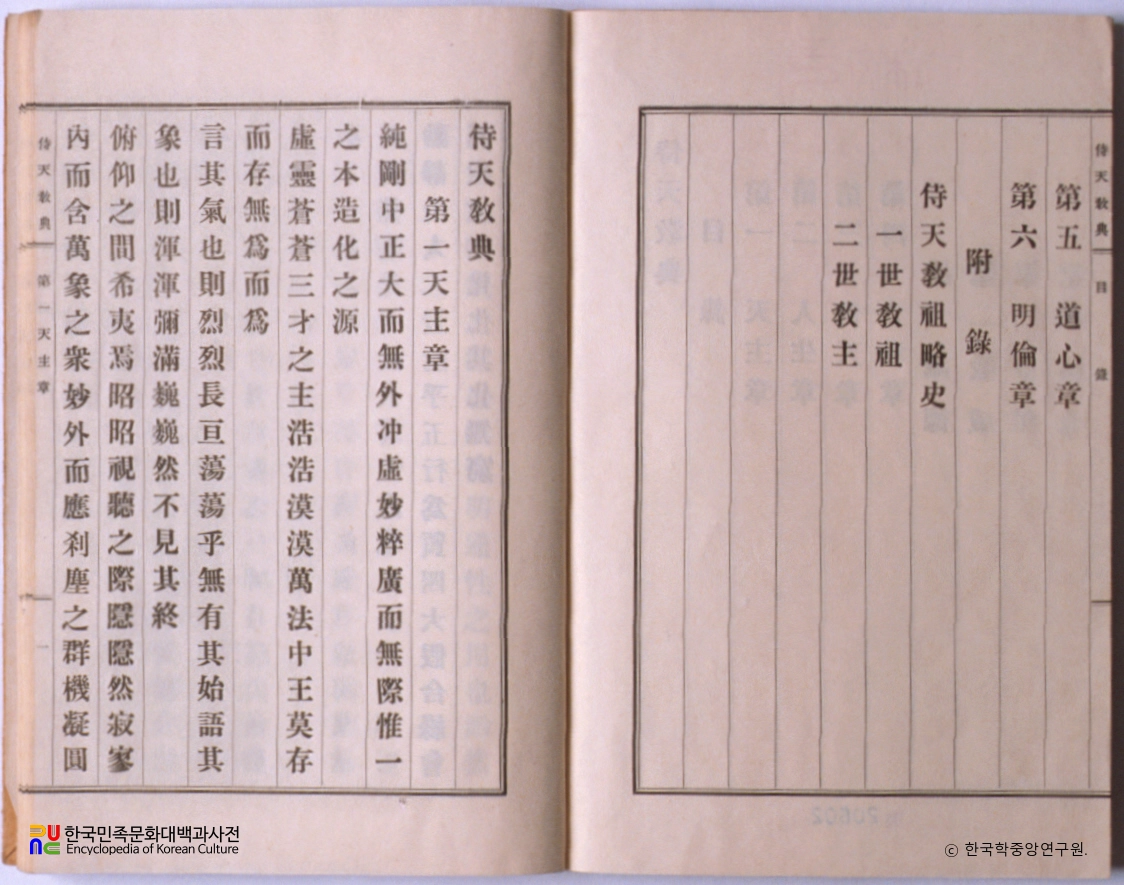 侍天敎典 目 錄
第五 道心章
第六 明倫章
附 錄
侍天敎祖略史
一世敎祖
二世敎主
侍天敎典
第一天主章
純剛中正大而無外冲虛妙粹廣而無際惟一
之本造化之源
虛靈蒼蒼三才之主浩浩漠漠萬法中王莫存
而存無爲而爲
言其氣也則烈烈長亘蕩蕩乎無有其始語其
象也則渾渾彌滿巍巍然不見其終
俯仰之間希夷焉昭昭視聽之際隱隱然寂寥
內而含萬象之衆妙外而應刹塵之群機凝圓
侍天敎典 第一天主章 一
한국민족문화대백과사전
Encyclopedia of Korean Culture
ⓒ 한국학중앙연구원.